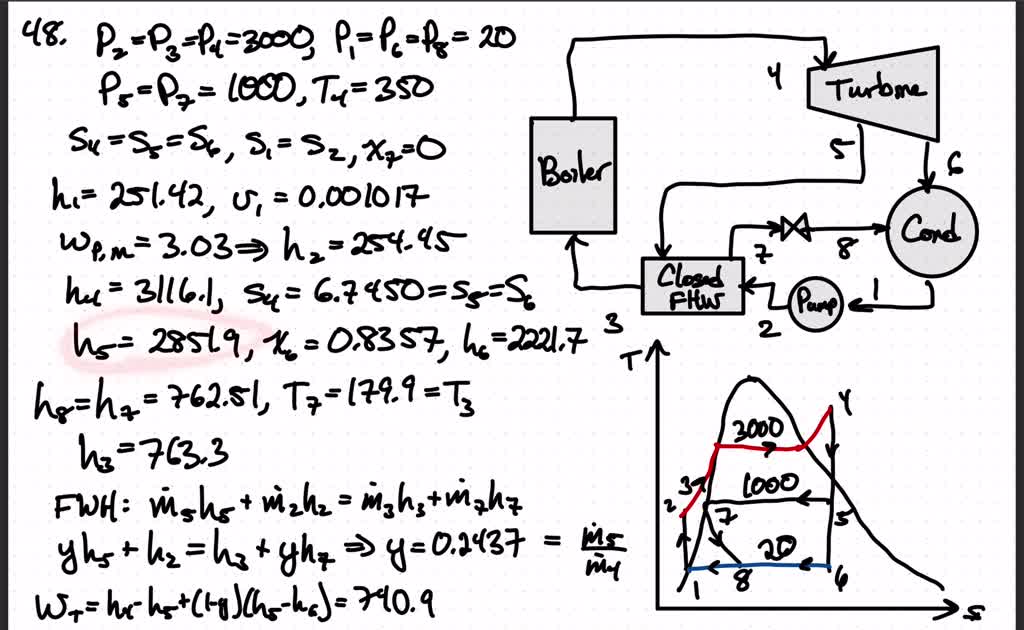 48. P₂=P₃=P₄=3000, P₁=P₆=P₈=20
P₅=P₇=1000, T₄=350
s₄=s₅=s₆, s₁=s₂, x₇=0
h₁=251.42, v₁=0.001017
w_P,m=3.03⇒h₂=254.45
h₄=3116.1, s₄=6.7450=s₅=s₆
h₅=2851.9, x₆=0.8357, h₆=2221.7
h₈=h₇=762.51, T₇=179.9=T₃
h₃=763.3
FWH: ṁ₅h₅+ṁ₂h₂=ṁ₃h₃+ṁ₇h₇
yh₅+h₂=h₃+yh₇⇒y=0.2437=ṁ₅/ṁ₄
w_T=h₄-h₅+(1-y)(h₅-h₆)=740.9
4
Turbine
Boiler
5
6
7
8
Cond
Closed
FHW
Pump
1
2
3
T
4
3000
3
2
1000
7
5
20
1
8
6
s